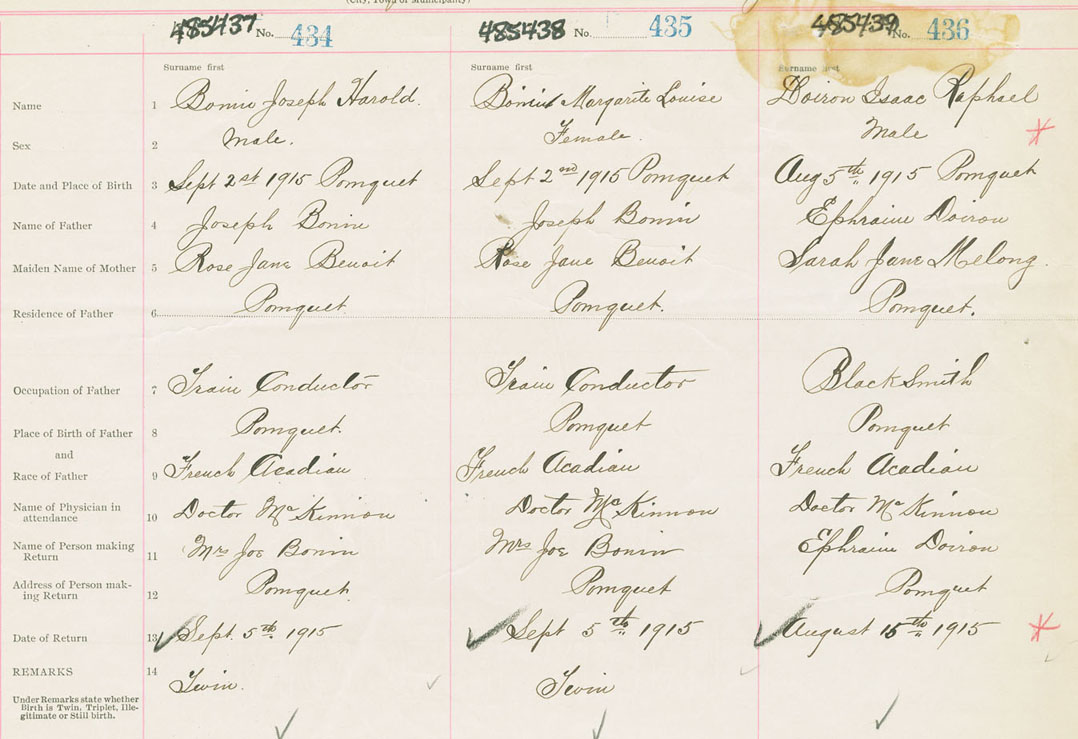 (City, Town or Municipality)
485437 No. 434 485438 No. 435 485439 No. 436
Surname first Surname first Surname first
Name 1 Bonin Joseph Harold. Bonin Margarite Louise Doiron Isaac Raphael
Sex 2 Male. Female. Male
Date and Place of Birth 3 Sept 2st 1915 Pomquet Sept 2nd 1915 Pomquet Aug 5th 1915 Pomquet
Name of Father 4 Joseph Bonin Joseph Bonin Ephraim Doiron
Maiden Name of Mother 5 Rose Jane Benoit Rose Jane Benoit Sarah Jane Melong.
Residence of Father 6 Pomquet Pomquet. Pomquet.
Occupation of Father 7 Train Conductor Train Conductor BlackSmith
Place of Birth of Father 8 Pomquet. Pomquet Pomquet
and
Race of Father 9 French Acadian French Acadian French Acadian
Name of Physician in
attendance 10 Doctor McKinnon Doctor McKinnon Doctor McKinnon
Name of Person making
Return 11 Mrs Joe Bonin Mrs Joe Bonin Ephraim Doiron
Address of Person mak-
ing Return 12 Pomquet. Pomquet Pomquet
Date of Return 13 Sept. 5th 1915 Sept 5th 1915 August 15th 1915
REMARKS 14 Twin. Twin
Under Remarks state whether
Birth is Twin, Triplet, Ille-
gitimate or Still birth.